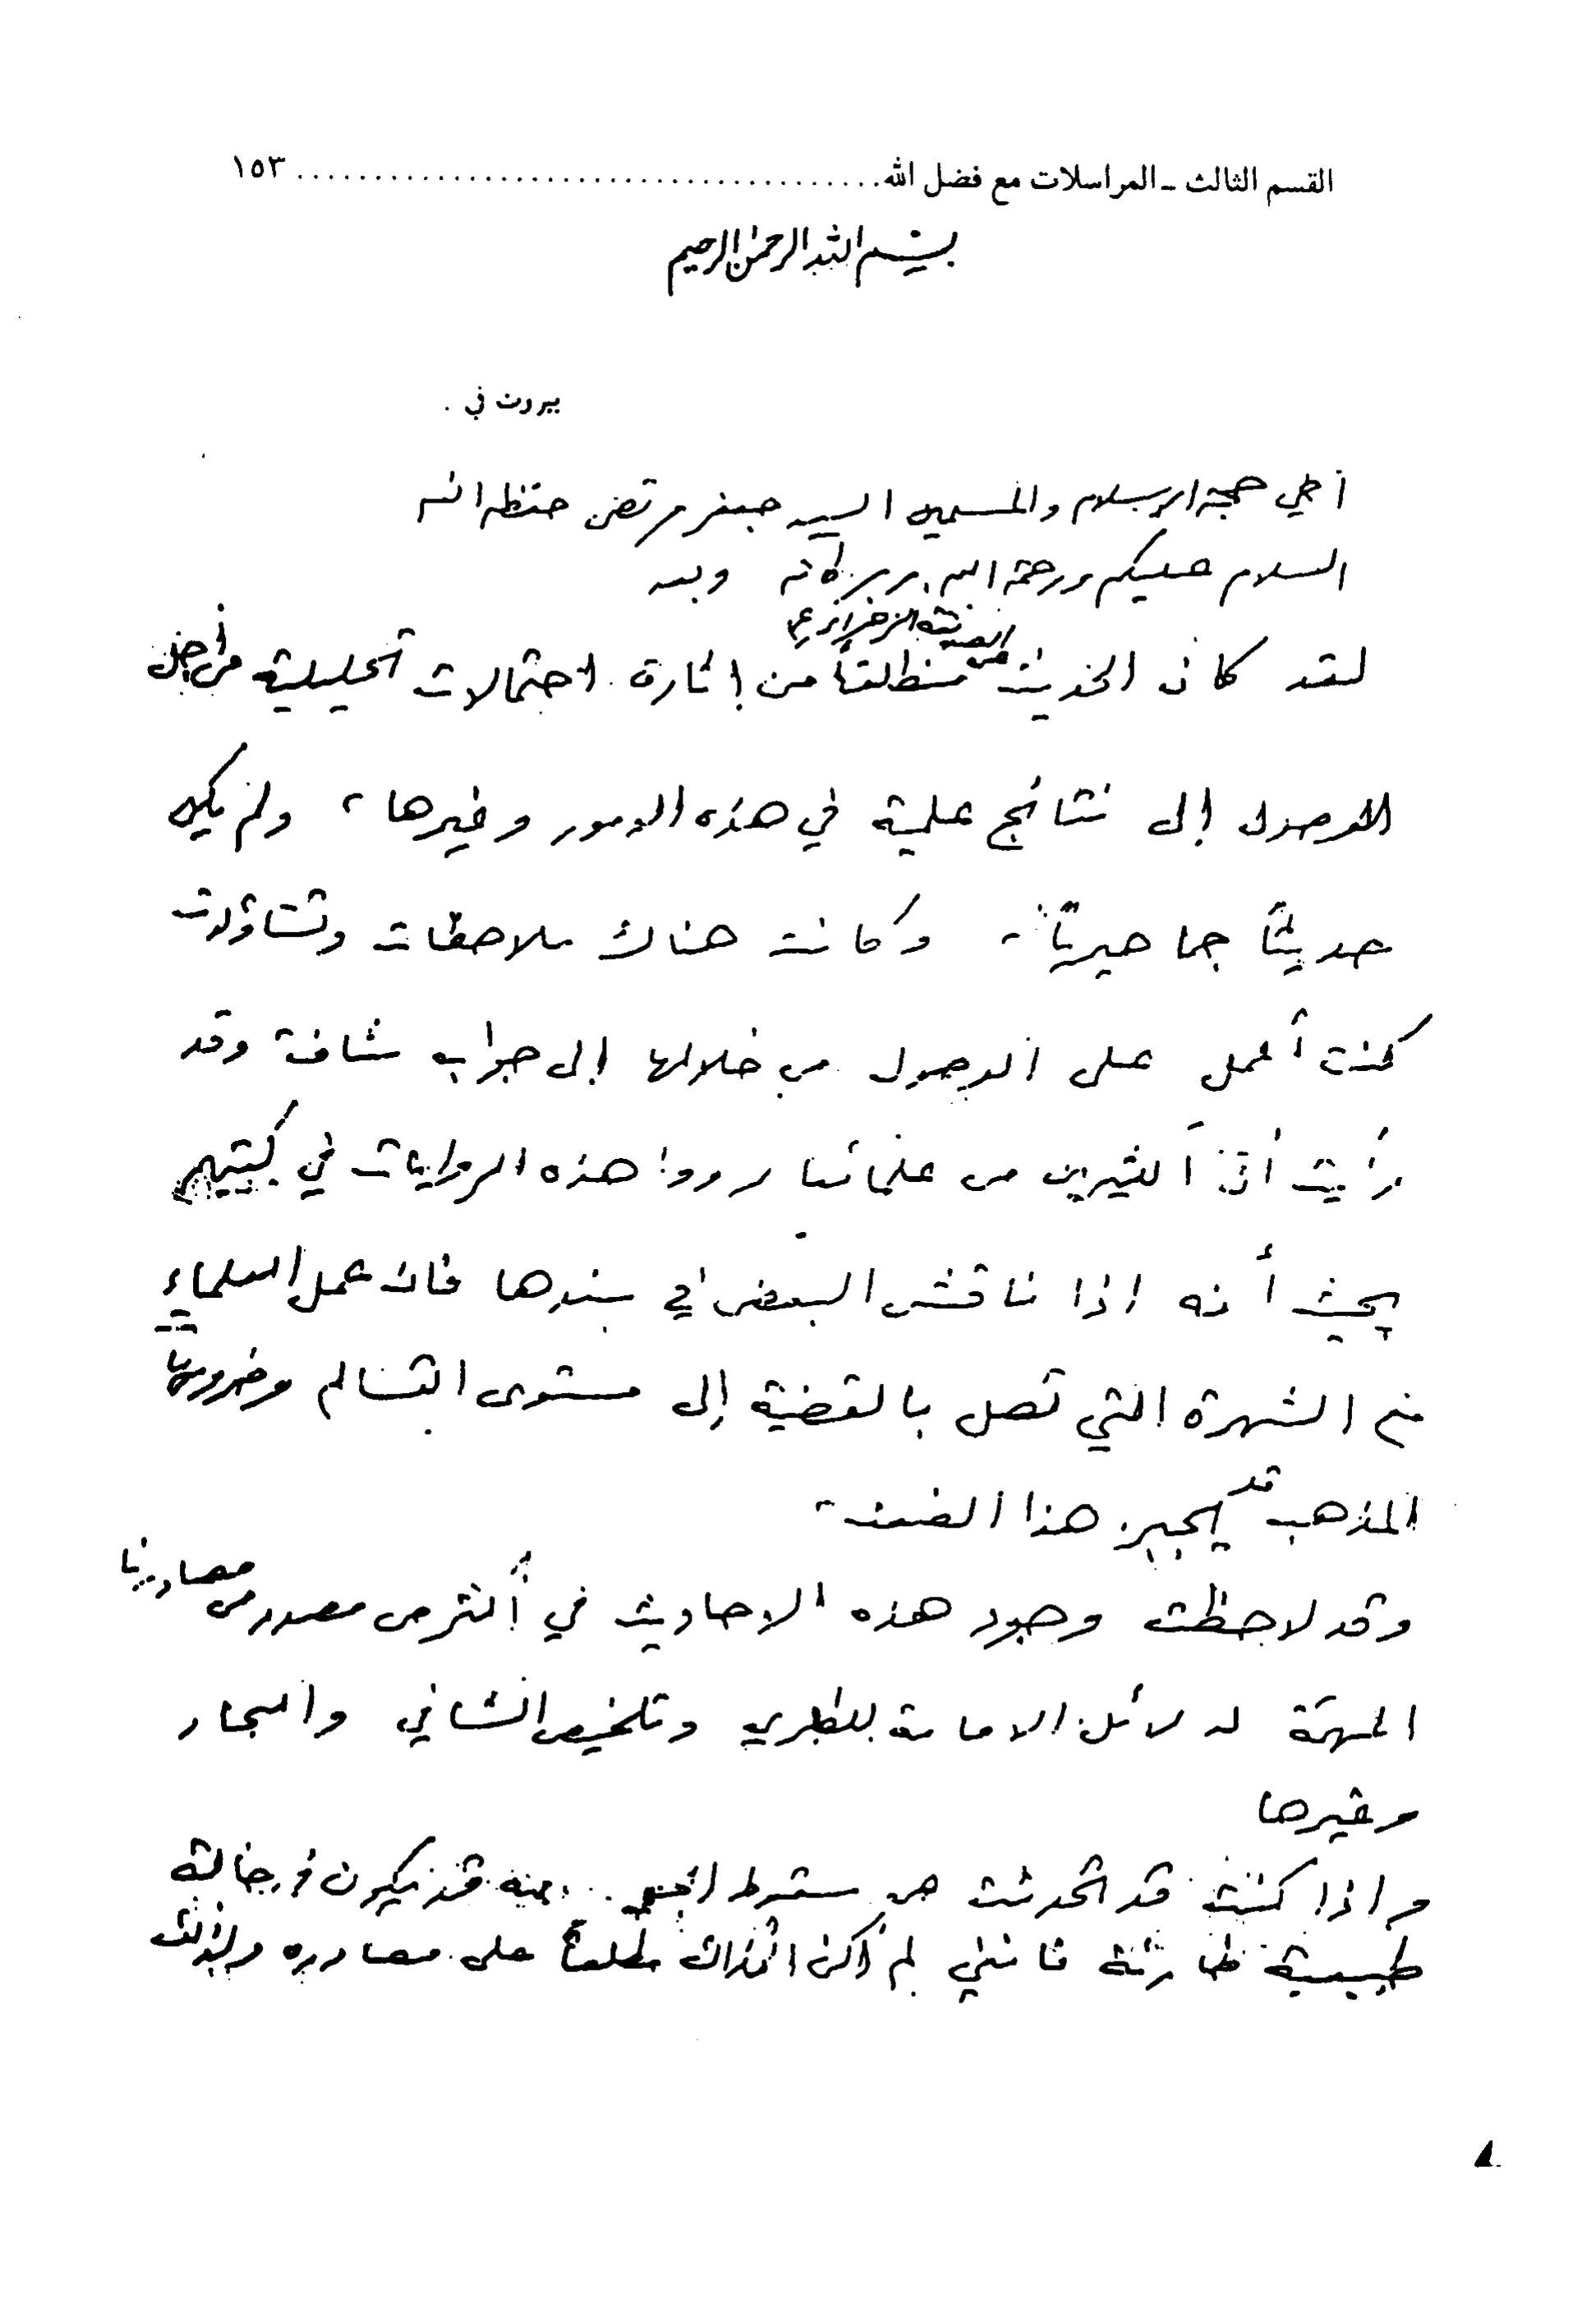 القسم الثالث ـ المراسلات مع فضل الله ........................................ ١٥٣
بسم الله الرحمن الرحيم
بيروت في .
أخي حجة الإسلام والمسلمين السيد جعفر مرتضى حفظه الله
السلام عليكم ورحمة الله وبركاته وبعد
لقد كان الحديث عن الصديقة الزهراء ع منطلقاً من إثارة احتمالات تحليلية من أجل
الوصول إلى نتائج علمية في هذه الامور وغيرها، ولم يكن
حديثاً جماهيرياً، وكانت هناك ملاحظات وتساؤلات
كنت أعمل على الوصول من خلالها إلى جواب شاف، وقد
رأيت أنّ الكثيرين من علمائنا رووا هذه الروايات في كتبهم
بحيث أنه اذا ناقش البعض في سندها فان عمل العلماء
مع الشهرة التي تصل بالقضية إلى مستوى التسالم وضروريات
المذهب قد يجبر هذا الضعف.
وقد لاحظت وجود هذه الاحاديث في أكثر من مصدر من مصادرنا
المهمّة كدلائل الامامة للطبري وتلخيص الشافي والبحار
وغيرها
واذا كنت قد تحدثت عن سقوط الجنين بأنه قد يكون في حالة
طبيعية طارئة فانني لم أكن آنذاك مطلعاً على مصادره ولذلك